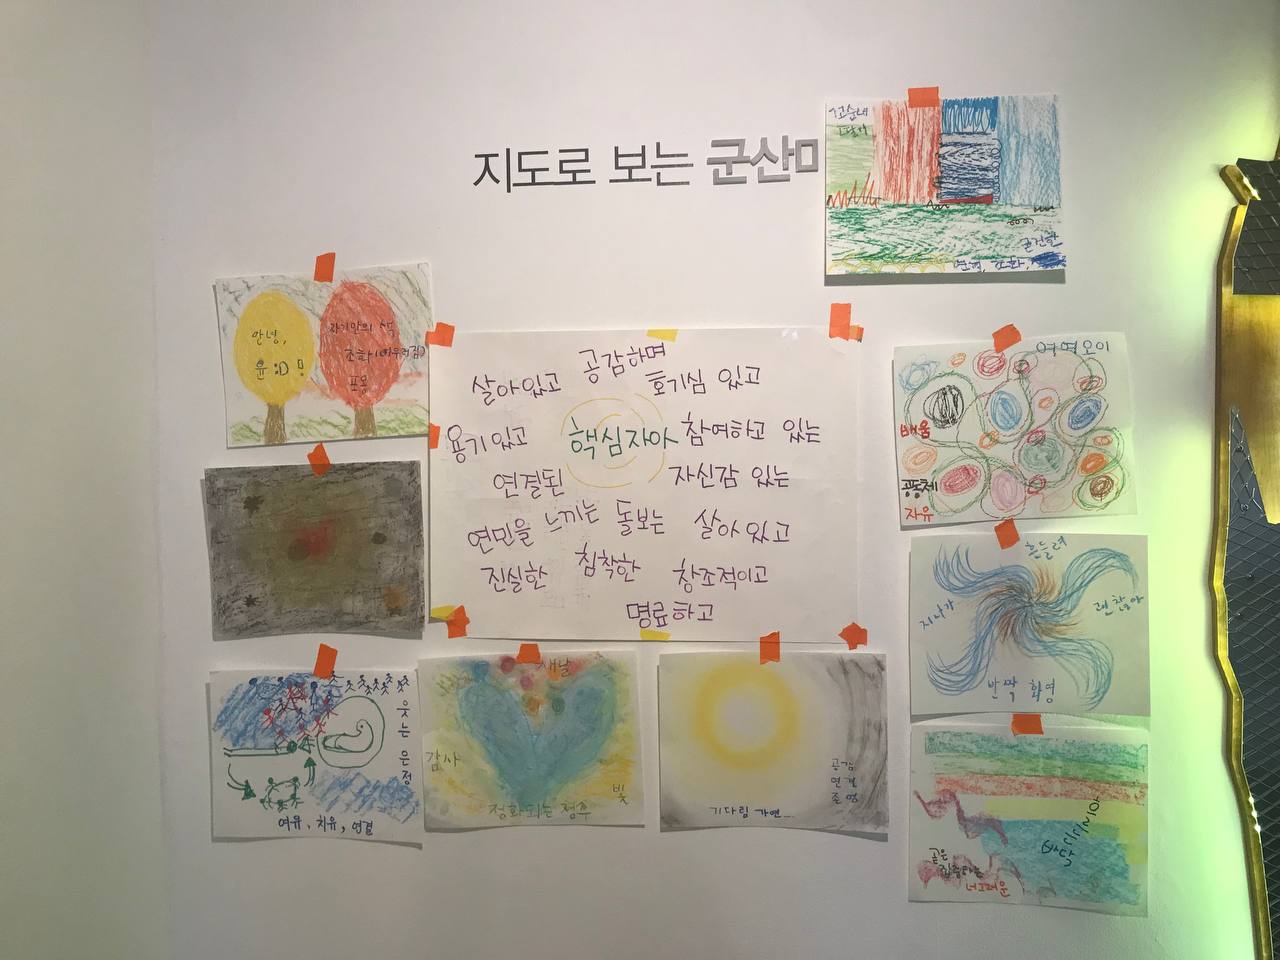 지도로 보는 군산
안녕,
윤 :D !
자기만의 색
조화(어우러짐)
포옹
공감하며
살아있고
호기심 있고
용기있고
핵심자아
참여하고 있는
연결된
자신감 있는
연민을 느끼는
돌보는
살아있고
진실한
침착한
창조적이고
명료하고
여명오이
배움
공동체
자유
흔들려
지나가
괜찮아
반짝 환영
웃는 은정
여유, 치유, 연결
새날
감사
빛
정화되는 청주
공감
연결
존엄
기다림 가면...
바닥
너그러운